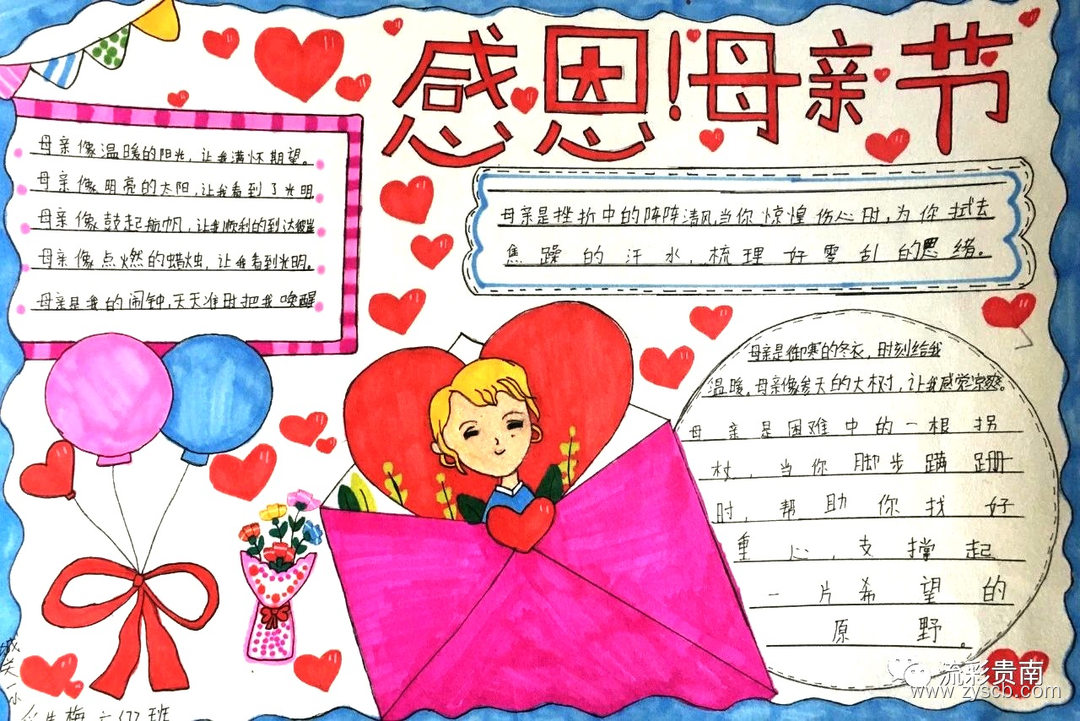 感恩!母亲节
母亲像温暖的阳光，让我满怀期望。
母亲像明亮的太阳，让我看到了光明
母亲像鼓起船帆，让我顺利的到达彼岸
母亲像点燃的蜡烛，让我看到光明。
母亲是我的闹钟，天天准时把我唤醒
母亲是挫折中的阵阵清风，当你惊惶伤心时，为你拭去
焦躁的汗水，梳理好零乱的思绪。
母亲是御寒的冬衣，时刻给我
温暖，母亲像参天的大树，让我感觉凉爽。
母亲是困难中的一根拐
杖，当你脚步蹒跚
时，帮助你找好
重心，支撑起
一片希望的
原野。
城关一小
梅六(7)班
流彩贵南
www.zyscb.com